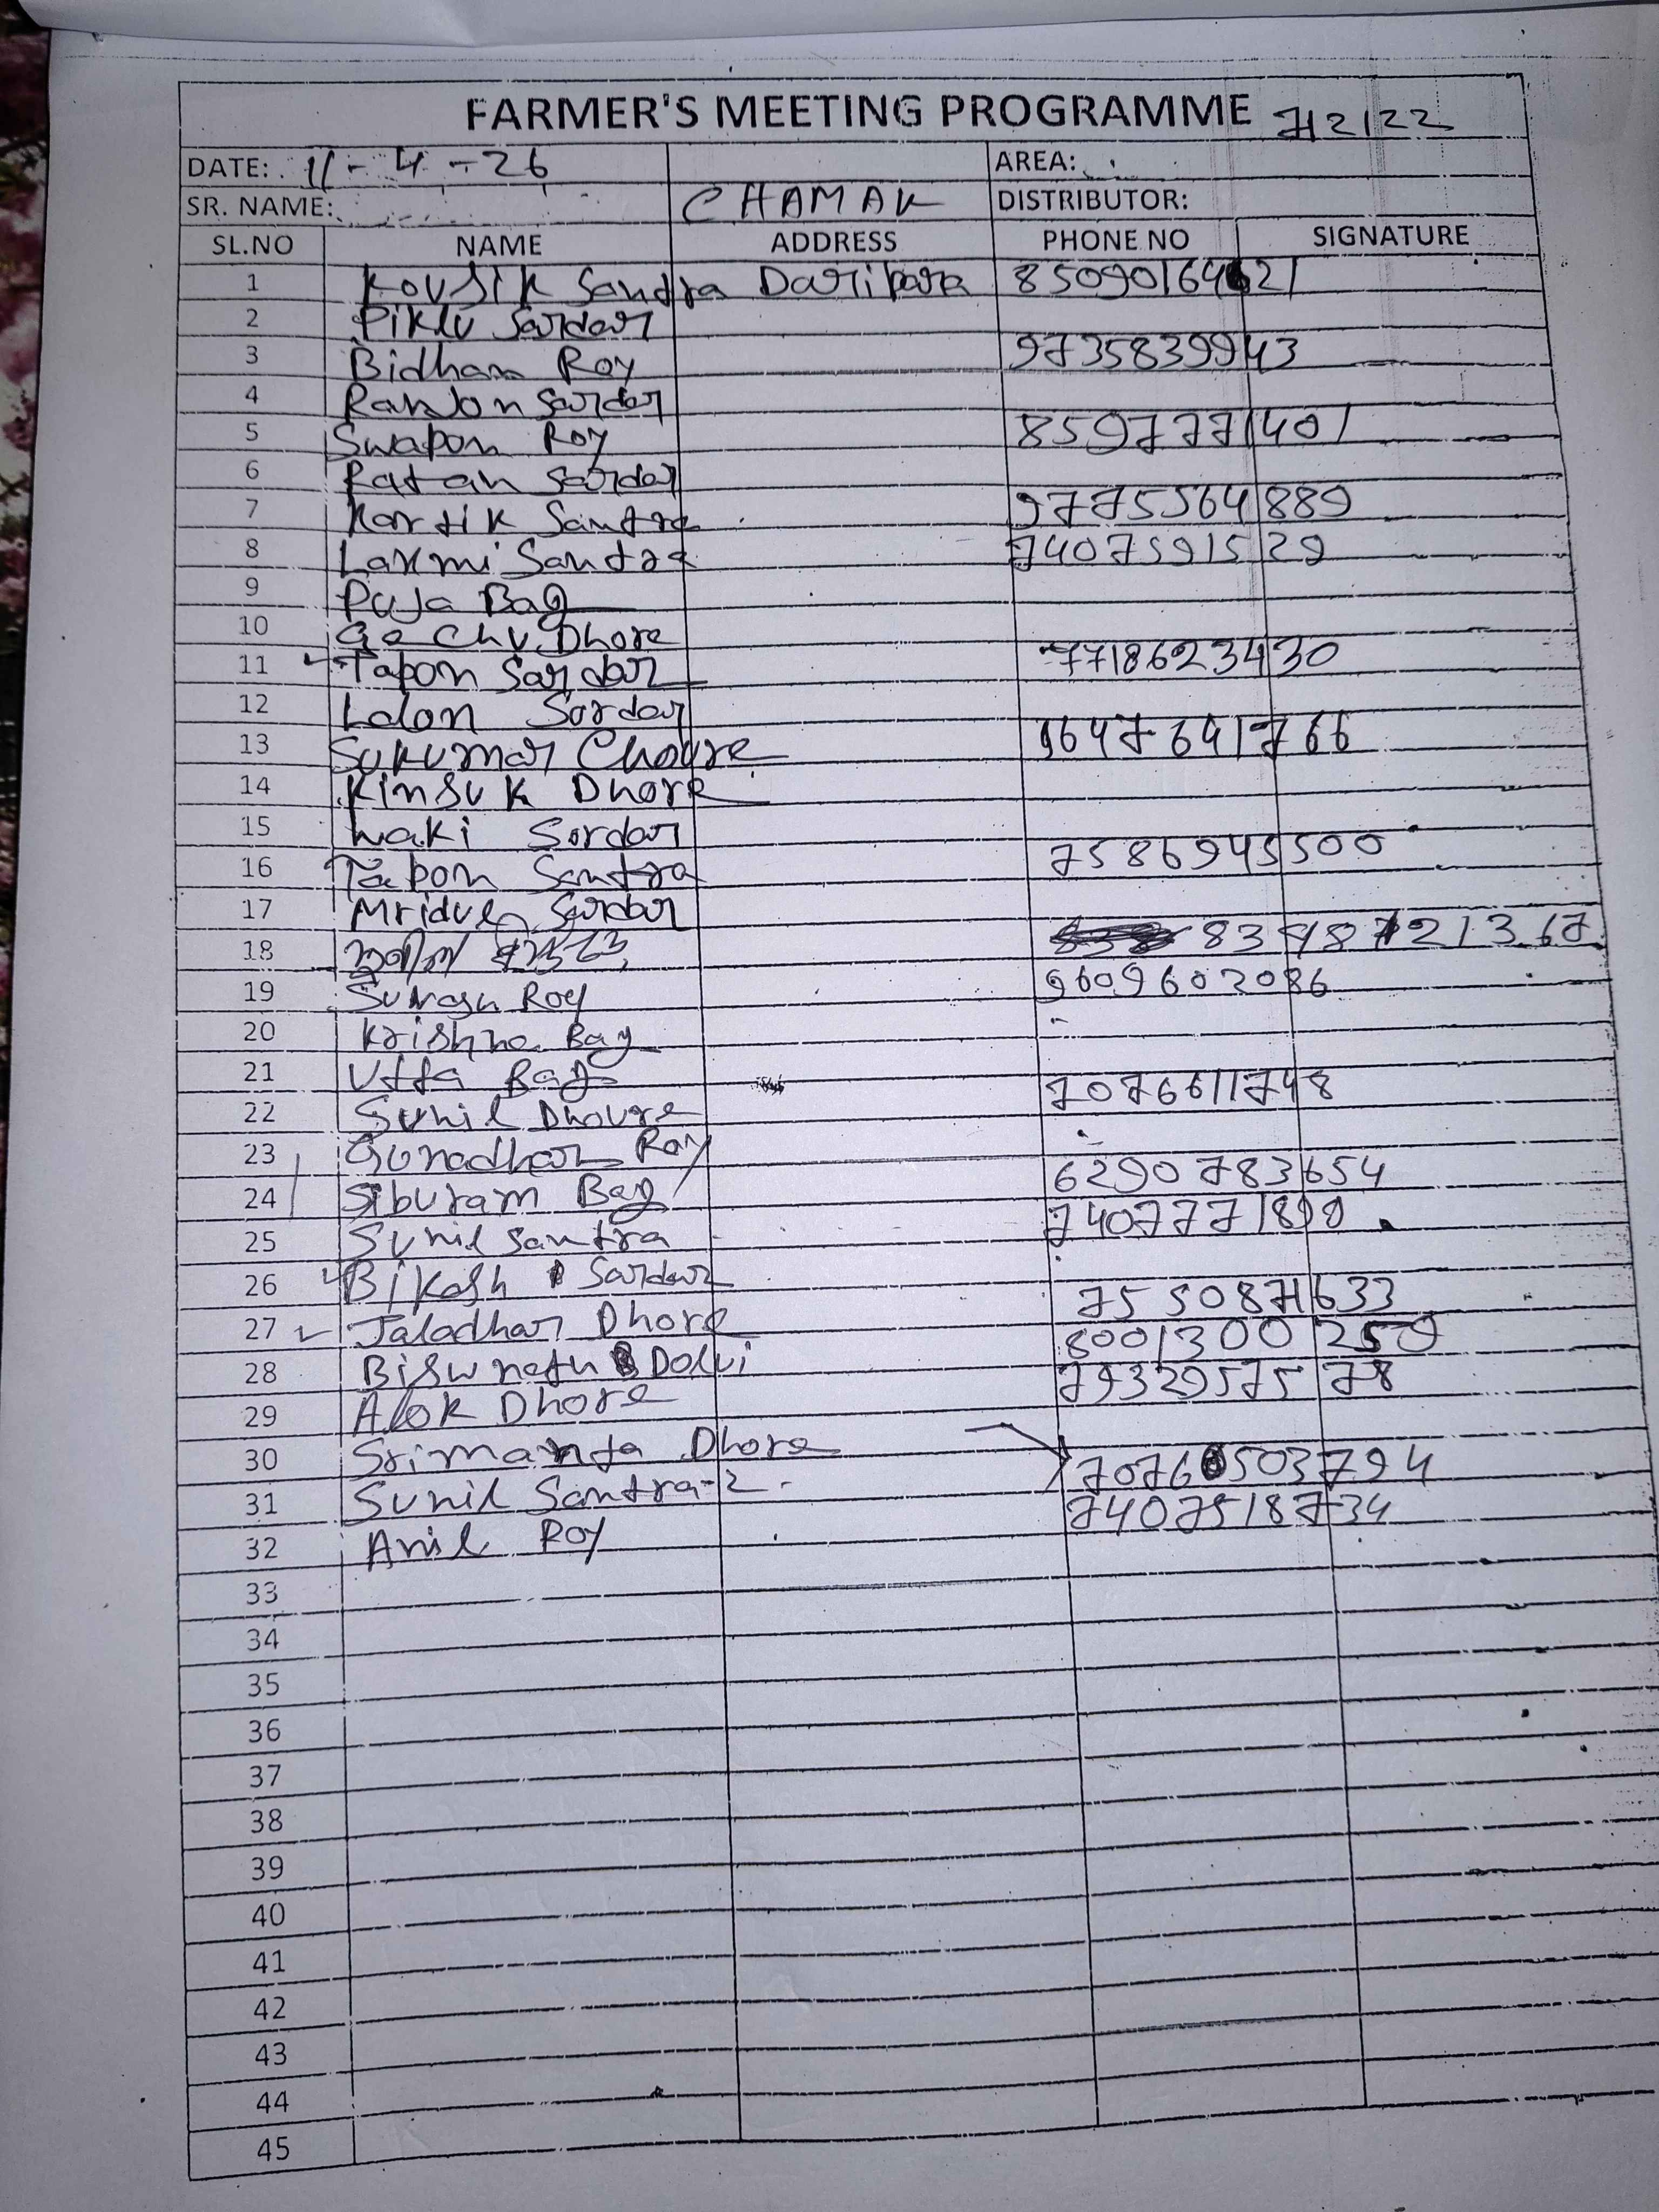 FARMER'S MEETING PROGRAMME 712122
DATE: 11-4-26 AREA:
SR. NAME: CHAMAK DISTRIBUTOR:
SL.NO NAME ADDRESS PHONE NO SIGNATURE
1 Kousik Santra Daripara 8509016421
2 Piklu Sardar
3 Bidhan Roy 9735839943
4 Ranjon Sardar
5 Swapon Roy 8597771401
6 Ratan Sardar
7 Kartik Santra 9775564889
8 Laxmi Santra 7407591529
9 Puja Bag
10 Dhore
11 Tapon Sardar 7718623430
12 Lalon Sardar
13 Sukumar Choure 9647641766
14 Kinsuk Dhore
15 Laki Sardar
16 Tapon Santra 7586945500
17 Mridul Sardar
18 8348721367
19 Suvash Roy 9609602086
20 Krishna Bag
21 Utta Bag
22 Sunil Dhoure 7076611748
23 Gunadhar Roy
24 Siburam Bag 6290783654
25 Sunil Santra 7407771898
26 Bikash Sardar
27 Jaladhar Dhore 7550871633
28 Biswnath Dolui 8001300250
29 Alok Dhore 7932957578
30 Srimanta Dhore
31 Sunil Santra-2 7076503794
32 Anil Roy 7407518734
33
34
35
36
37
38
39
40
41
42
43
44
45